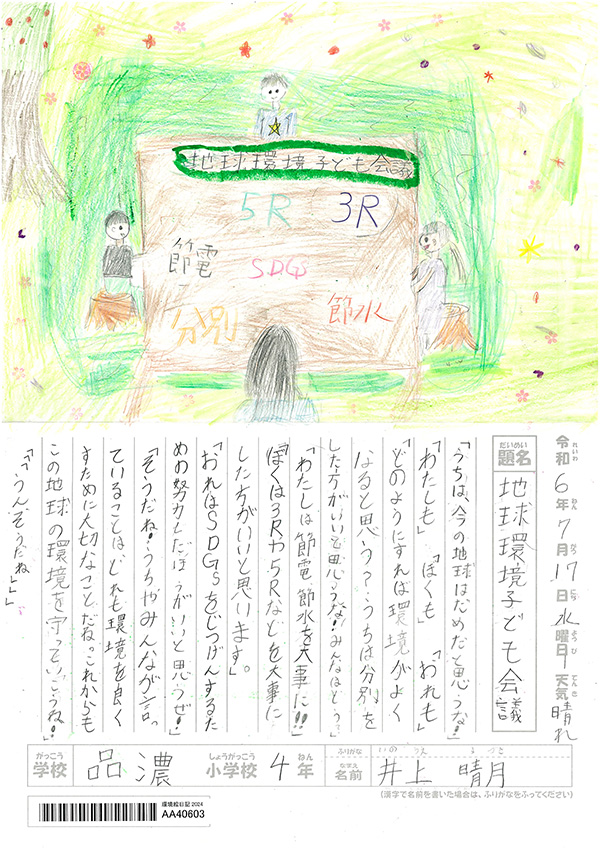 地球環境子ども会議
5R
3R
節電
SDGs
分別
節水
れいわ ねん がつ にち ようび てんき
令和6年7月17日水曜日 天気 晴れ
だいめい
題名 地球環境子ども会議
「うちは、今の地球はだめだと思うな!」
「わたしも」「ぼくも」「おれも」
「どのようにすれば環境がよく
なると思う?うちは分別を
した方がいいと思うな!みんなはどう?」
「わたしは節電、節水を大事に!!」
「ぼくは3Rや5Rなどを大事に
した方がいいと思います。」
「おれはSDGsをじつげんするた
めの努力したほうがいいと思うぜ!」
「そうだね!うちやみんなが言っ
ていることは、どれも環境を良く
すために大切なことだね。これからも
この地球の環境を守っていこうね!」
「「「うんそうだね」」」
がっこう しょうがっこう ねん ふりがな
学校 品濃 小学校 4年
なまえ
名前 井上 晴月
(漢字で名前を書いた場合は、ふりがなをふってください)
環境絵日記2024
AA40603